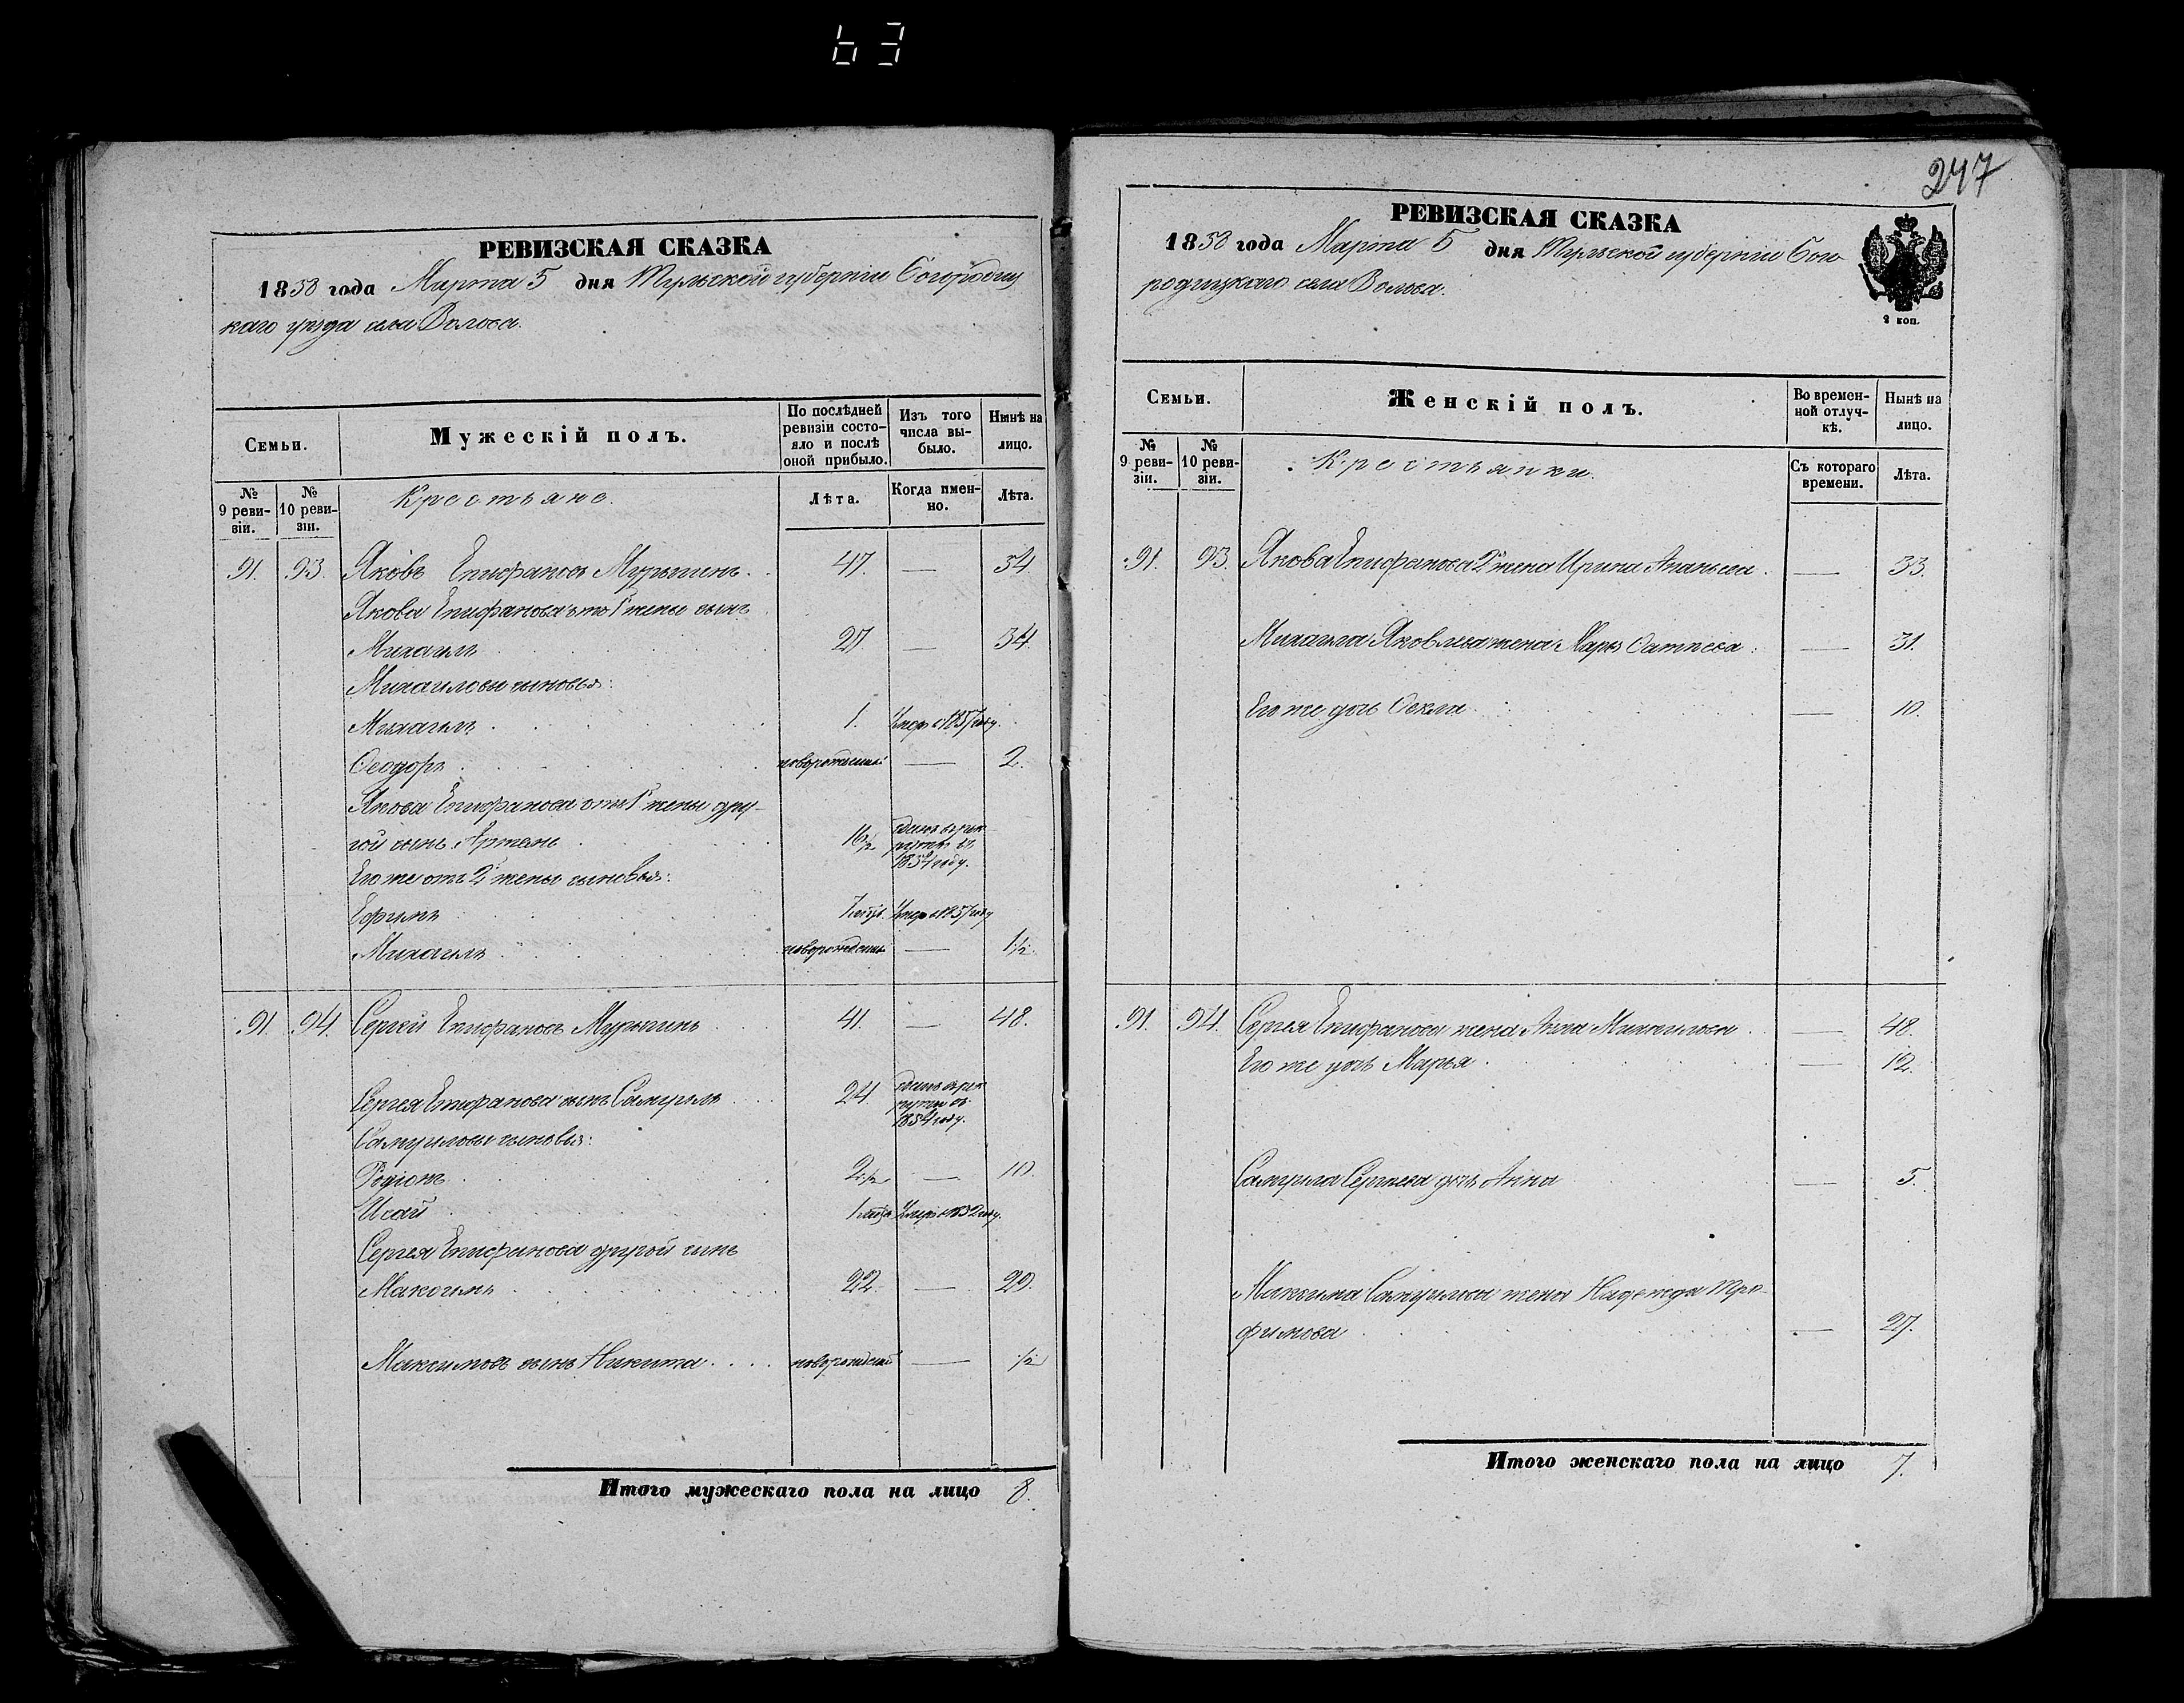 63
РЕВИЗСКАЯ СКАЗКА
1858 года Марта 5 дня Тульской губернiи Богородиц
каго уѣзда села Волова.
Семьи.
Мужескiй полъ.
По послѣдней ревизiи состояло и послѣ оной прибыло.
Изъ того числа выбыло.
Нынѣ на лицо.
№ 9 ревизiи.
№ 10 ревизiи.
Крестьяне.
Лѣта.
Когда именно.
Лѣта.
91. 93. Яковъ Епифановъ 47. — 54
Якова Епифанова отъ 1й жены сынъ
Михаилъ 27 — 34
Михаиловы сыновья:
Михаилъ 1. Умеръ въ 1857 году.
Ѳеодоръ новорожденный — 2.
Якова Епифанова отъ 1й жены дру-
гой сынъ 16½ сданъ въ рек
руты въ
1854 году.
Его же отъ 2й жены сыновья:
Ефимъ Умеръ 1857 году
Михаилъ новорожденный — 1½
91. 94. Сергей Епифановъ 41. — 48.
Сергея Епифанова сынъ Самуилъ 24 сданъ въ рек
руты въ
1854 году.
Самуиловы сыновья:
Родiонъ 2½ — 10.
Исай Умеръ 1852 году.
Сергея Епифанова другой сынъ
Максимъ 22 — 29.
Максимовъ сынъ Никита новорожденный — ½
Итого мужескаго пола на лицо 8.
247
РЕВИЗСКАЯ СКАЗКА
1858 года Марта 5 дня Тульской губернiи Бого
родицкаго села Волова.
2 коп.
Семьи.
Женскiй полъ.
Во временной отлучкѣ.
Нынѣ на лицо.
№ 9 ревизiи.
№ 10 ревизiи.
Крестьянки.
Съ котораго времени.
Лѣта.
91. 93. Якова Епифанова 2я жена Ирина Ананьева — 33.
Михаила Яковлева жена — 31.
Его же дочь Ѳекла — 10.
91. 94. Сергея Епифанова жена Анна Михайлова — 48.
Его же дочь Марья — 12.
Самуила Сергеева дочь Анна — 5.
Максима Самуилова жена Надежда Тро-
фимова — 27.
Итого женскаго пола на лицо 7.